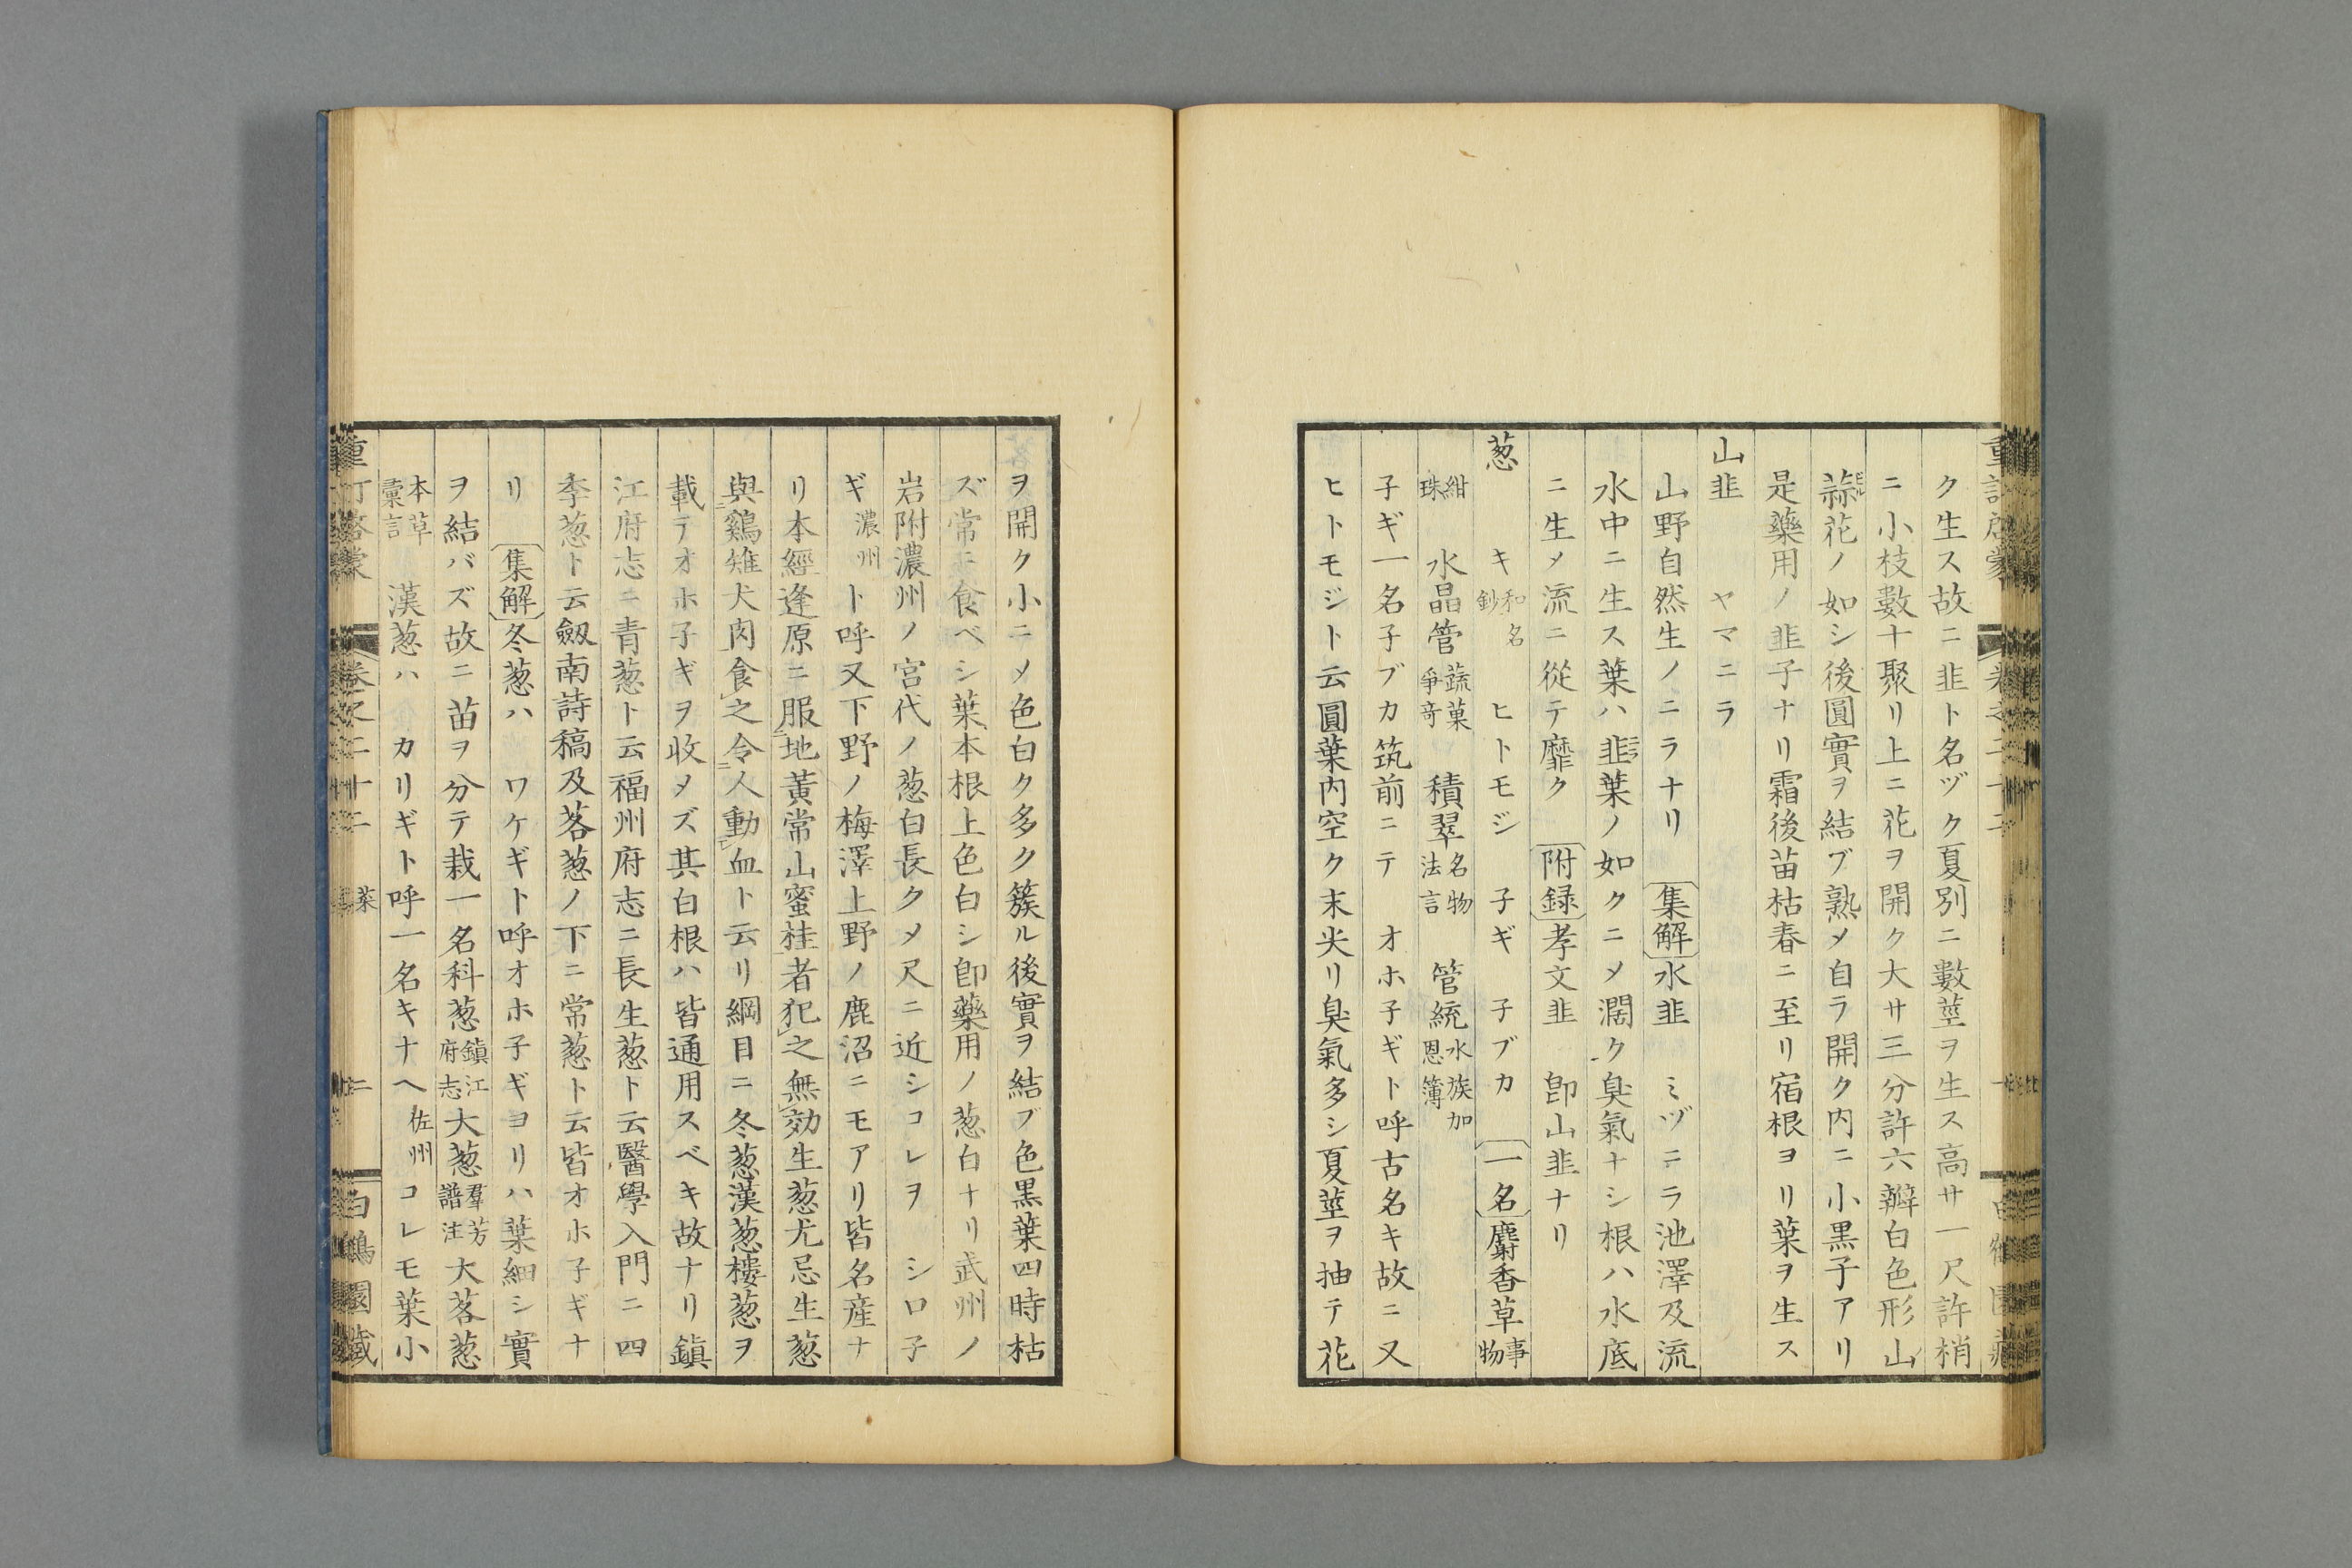 ク生ス故ニ韭ト名ヅク夏別ニ數莖ヲ生ス高サ一尺許梢
ニ小枝數十聚リ上ニ花ヲ開ク大サ三分許六瓣白色形山
蒜花ノ如シ後圓實ヲ結ブ熟〆自ラ開ク内ニ小黒子アリ
是藥用ノ韭子ナリ霜後苗枯春ニ至リ宿根ヨリ葉ヲ生ス
山韭 ヤマニラ
山野自然生ノニラナリ 集解 水韭 ミヅニラ池澤及流
水中ニ生ス葉ハ韭葉ノ如クニ〆濶ク臭氣ナシ根ハ水底
ニ生〆流ニ從テ靡ク 附録 孝文韭 卽山韭ナリ
葱 キ和名鈔 ヒトモジ 子ギ 子ブカ 一名 麝香草事物
紺珠 水晶管蔬菓爭奇 積翠名物法言 管統水族加恩簿
子ギ一名子ブカ筑前ニテ オホ子ギト呼古名キ故ニ又
ヒトモジト云圓葉内空ク末尖リ臭氣多シ夏莖ヲ抽テ花
ヲ開ク小ニ〆色白ク多ク簇ル後實ヲ結ブ色黒葉四時枯
ズ常ニ食ベシ葉本根上色白シ卽藥用ノ葱白ナリ武州ノ
岩附濃州ノ宮代ノ葱白長ク〆尺ニ近シコレヲ シロ子
ギ濃州ト呼又下野ノ梅澤上野ノ鹿沼ニモアリ皆名産ナ
リ本經逢原ニ服地黃常山蜜桂者犯之無効生葱尤忌生葱
與鷄雉犬肉食之令人動血ト云リ綱目ニ冬葱漢葱樓葱ヲ
載テオホ子ギヲ收メズ其白根ハ皆通用スベキ故ナリ鎮
江府志ニ青葱ト云福州府志ニ長生葱ト云醫學入門ニ四
季葱ト云劔南詩稿及茖葱ノ下ニ常葱ト云皆オホ子ギナ
リ 集解 冬葱ハ ワケギト呼オホ子ギヨリハ葉細シ實
ヲ結バズ故ニ苗ヲ分テ栽一名科葱鎮江府志大葱羣芳譜注大茖葱
本草彙言 漢葱ハ カリギト呼一名キナヘ佐州コレモ葉小